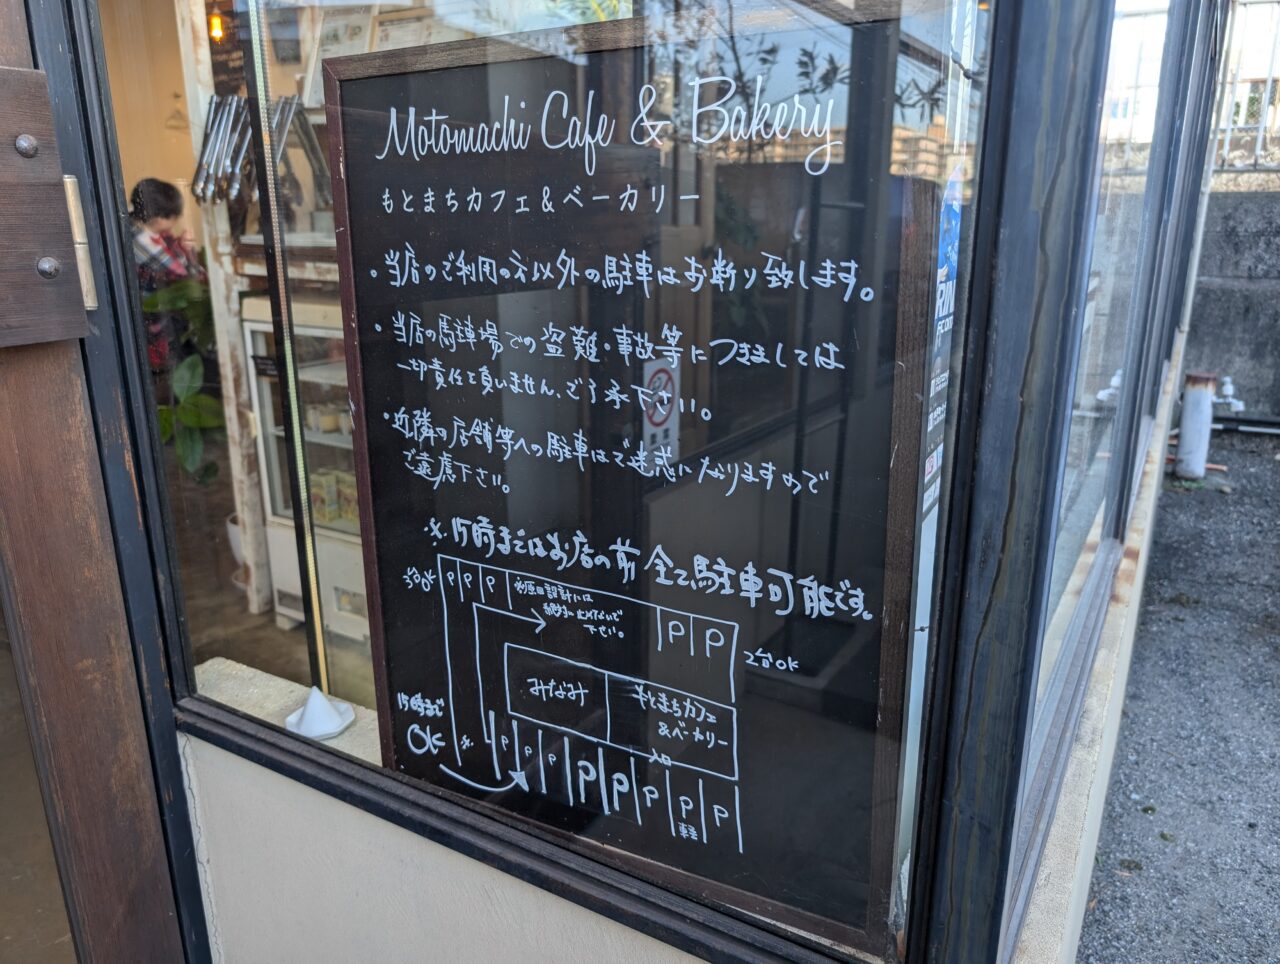 Motomachi Cafe & Bakery
もとまちカフェ&ベーカリー
・当店のご利用の方以外の駐車はお断り致します。
・当店の駐車場での盗難・事故等につきましては
一切責任を負いません、ご了承下さい。
・近隣の店舗等への駐車はご迷惑になりますので
ご遠慮下さい。
※15時まではお店の前全て駐車可能です。
3台OK
P P P
※原田設計には
絶対に止めないで
下さい。
P P
2台OK
みなみ
もとまちカフェ
&ベーカリー
入口
15時まで
OK
※
P P P P P P P P
軽